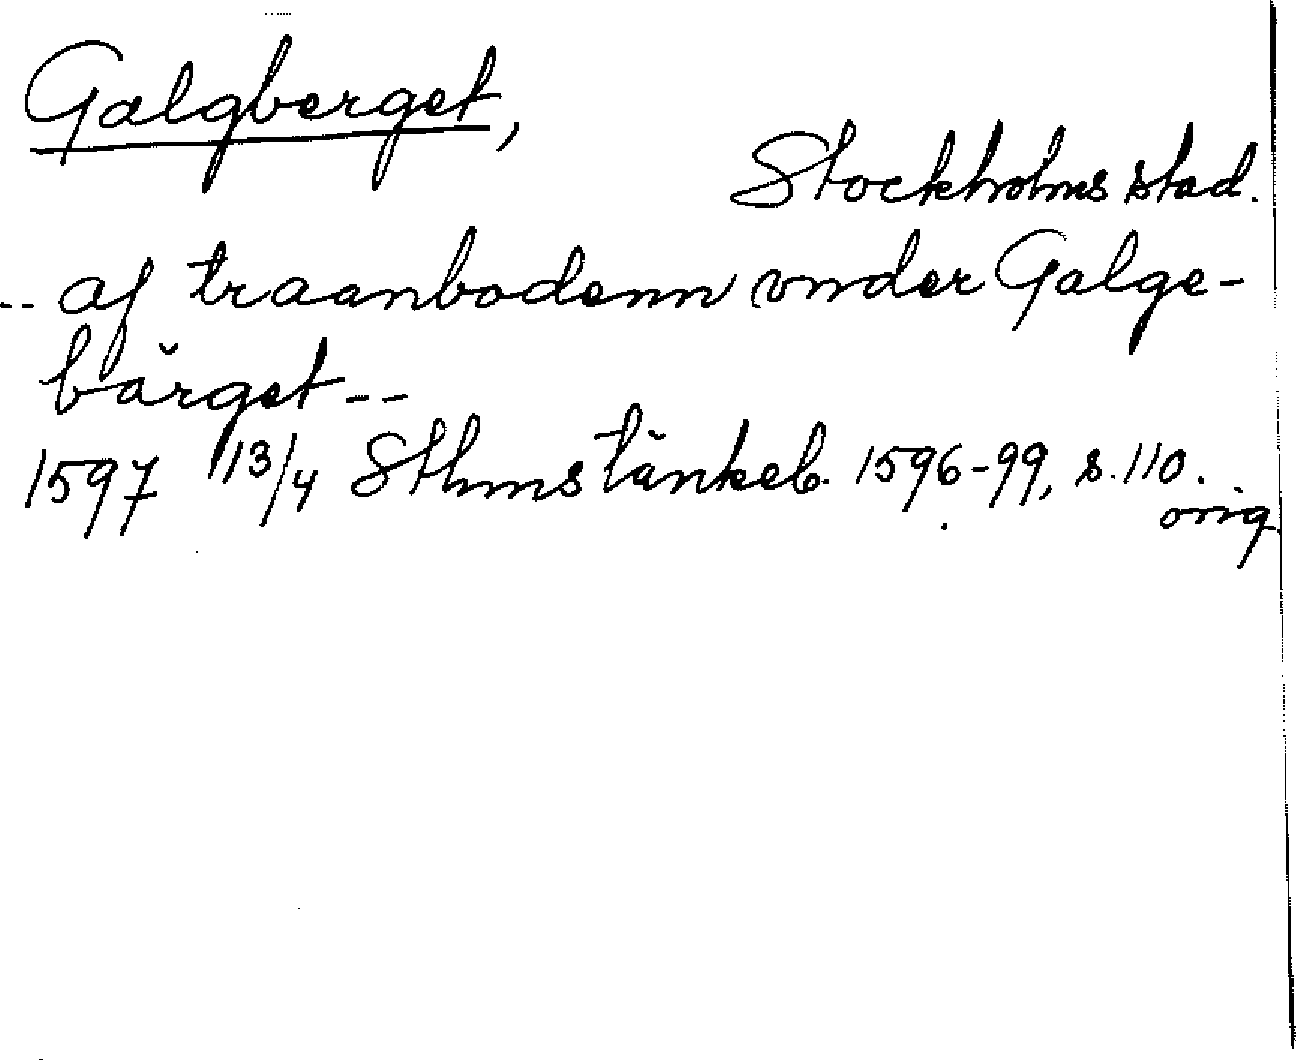 Galgberget,
Stockholms stad.
-- af traanbodenn vnder Galge-
bärget --
1597 13/4 Sthms tänkeb. 1596-99, s. 110.
orig.